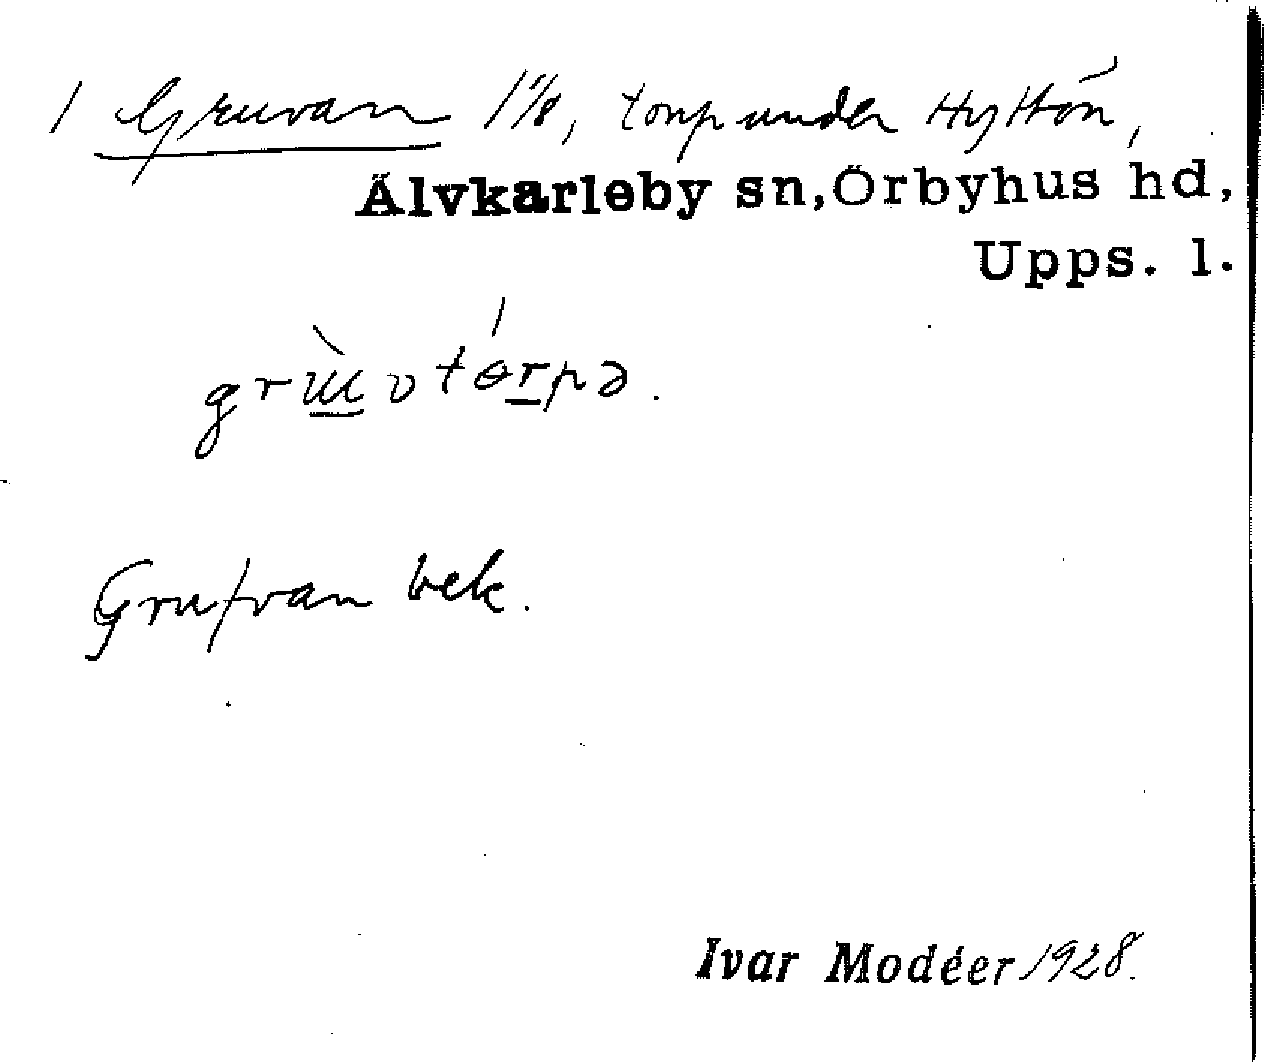 1 Gruvan 1 1/8, torp under Hyttön,
Älvkarleby sn, Örbyhus hd,
Upps. l.
grɯ̀vtɵ́rpə.
Grufvan bek.
Ivar Modéer 1928.